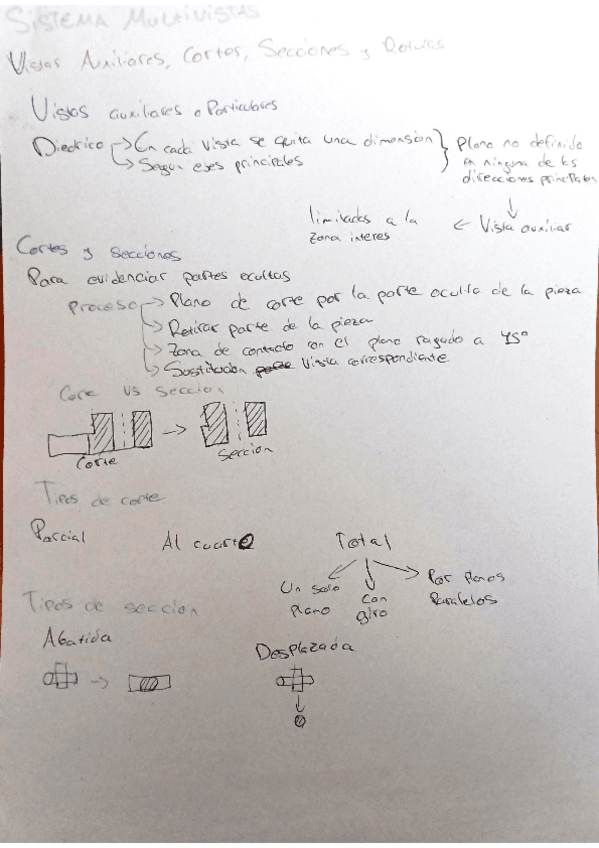 SISTEMA MULTIVISTAS
Vistas Auxiliares, Cortes, Secciones y Roturas
Vistas auxiliares o Particulares
Diedrico → En cada vista se quita una dimensión } Plano no definido
→ Segun ejes principales en ninguna de las
direcciones principales
↓
limitadas a la ← Vista auxiliar
zona interes
Cortes y secciones
Para evidenciar partes ocultas
Proceso → Plano de corte por la parte oculta de la pieza
→ Retirar parte de la pieza
→ Zona de contacto con el plano rayado a 45°
→ Sustitución vista correspondiente
Corte vs seccion
Corte
Seccion
Tipos de corte
Parcial Al cuarto Total
Un solo plano
Con giro
Por planos Paralelos
Tipos de seccion
Abatida
Desplazada